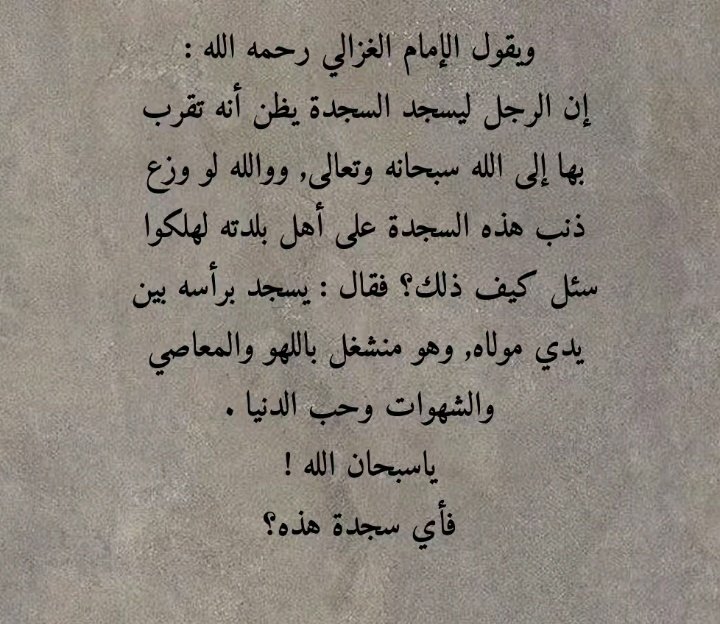 ويقول الإمام الغزالي رحمه الله :
إن الرجل ليسجد السجدة يظن أنه تقرب
بها إلى الله سبحانه وتعالى, ووالله لو وزع
ذنب هذه السجدة على أهل بلدته لهلكوا
سئل كيف ذلك؟ فقال : يسجد برأسه بين
يدي مولاه, وهو منشغل باللهو والمعاصي
والشهوات وحب الدنيا .
ياسبحان الله !
فأي سجدة هذه؟